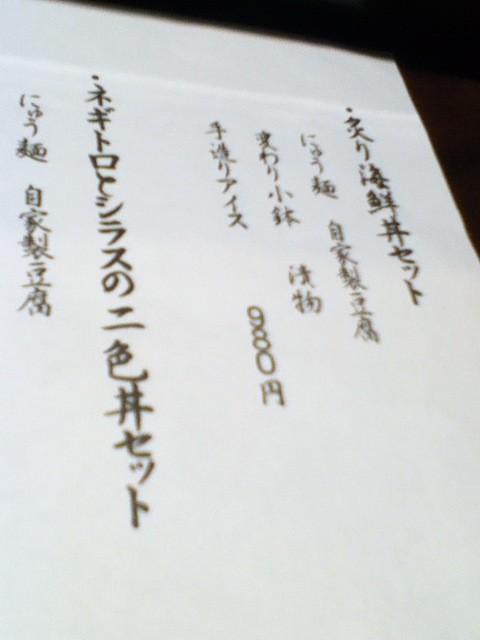 ・炙り海鮮丼セット
にゅう麺 自家製豆腐
変わり小鉢 漬物
手造りアイス 980円
・ネギトロとシラスの二色丼セット
にゅう麺 自家製豆腐